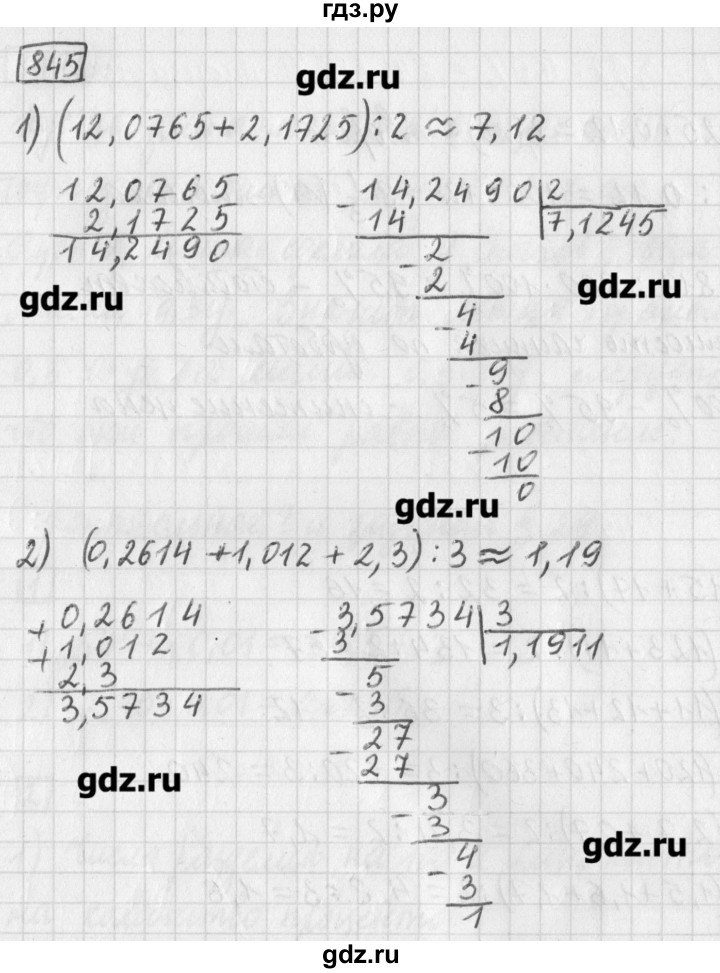 гдз.ру
845
gdz.ru
1) (12,0765+2,1725):2 ≈ 7,12
12,0765
2,1725
14,2490
- 14,2490 2
14 7,1245
- 2
2
- 4
4
- 9
8
- 10
10
0
gdz.ru
gdz.ru
gdz.ru
2) (0,2614+1,012+2,3):3 ≈ 1,19
+ 0,2614
+ 1,012
2,3
3,5734
- 3,5734 3
3 1,1911
- 5
3
- 27
27
- 3
3
- 4
3
1
gdz.ru
gdz.ru
gdz.ru